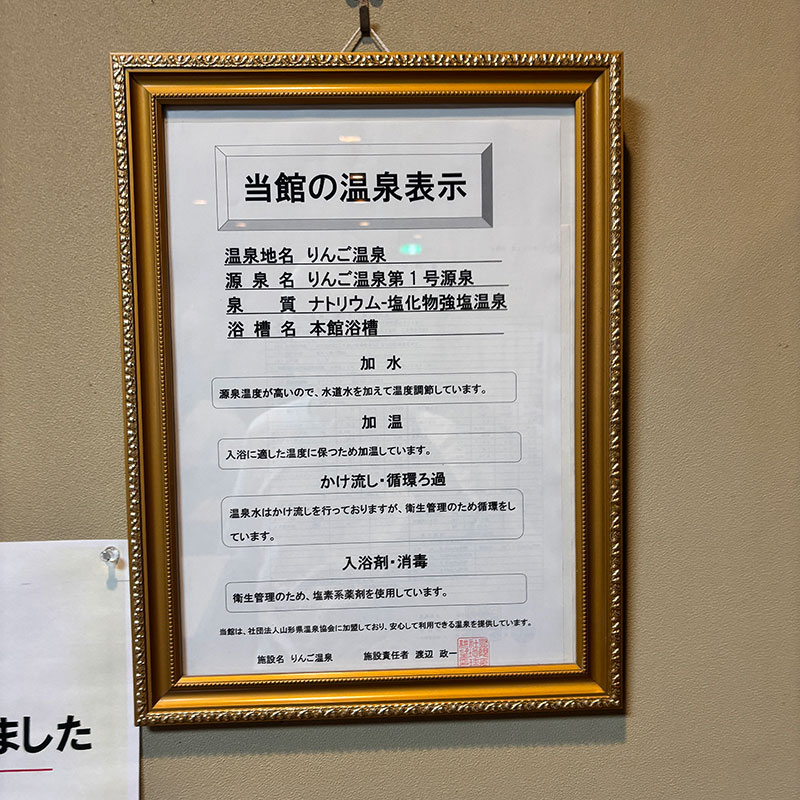 当館の温泉表示
温泉地名 りんご温泉
源泉名 りんご温泉第1号源泉
泉質 ナトリウム-塩化物強塩温泉
浴槽名 本館浴槽
加水
源泉温度が高いので、水道水を加えて温度調節しています。
加温
入浴に適した温度に保つため加温しています。
かけ流し・循環ろ過
温泉水はかけ流しを行っておりますが、衛生管理のため循環をし
ています。
入浴剤・消毒
衛生管理のため、塩素系薬剤を使用しています。
当館は、社団法人山形県温泉協会に加盟しており、安心して利用できる温泉を提供しています。
施設名 りんご温泉 施設責任者 渡辺 政一
ました